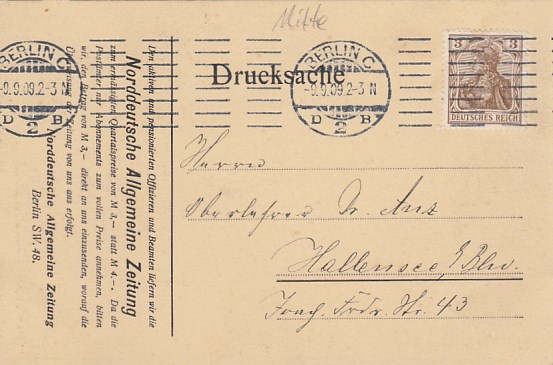 Mitte
BERLIN C.
-9.9.09.2-3N
D 2 B
Drucksache
BERLIN C.
-9.9.09.2-3N
D 2 B
3 3
DEUTSCHES REICH
Den aktiven und pensionierten Offizieren und Beamten liefern wir die
Norddeutsche Allgemeine Zeitung
zum ermäßigten Quartalspreise von M 3,— statt M 4.—. Da die
Postämter nur Abonnements zum vollen Preise annehmen, bitten
wir den Betrag von M 3,— direkt an uns einzusenden, worauf die
Überweisung der Zeitung von uns aus erfolgt.
Norddeutsche Allgemeine Zeitung
Berlin SW. 48.
Herrn
Oberlehrer Dr.
Hallensee b/Bln.
Joach. Frdr. Str. 43